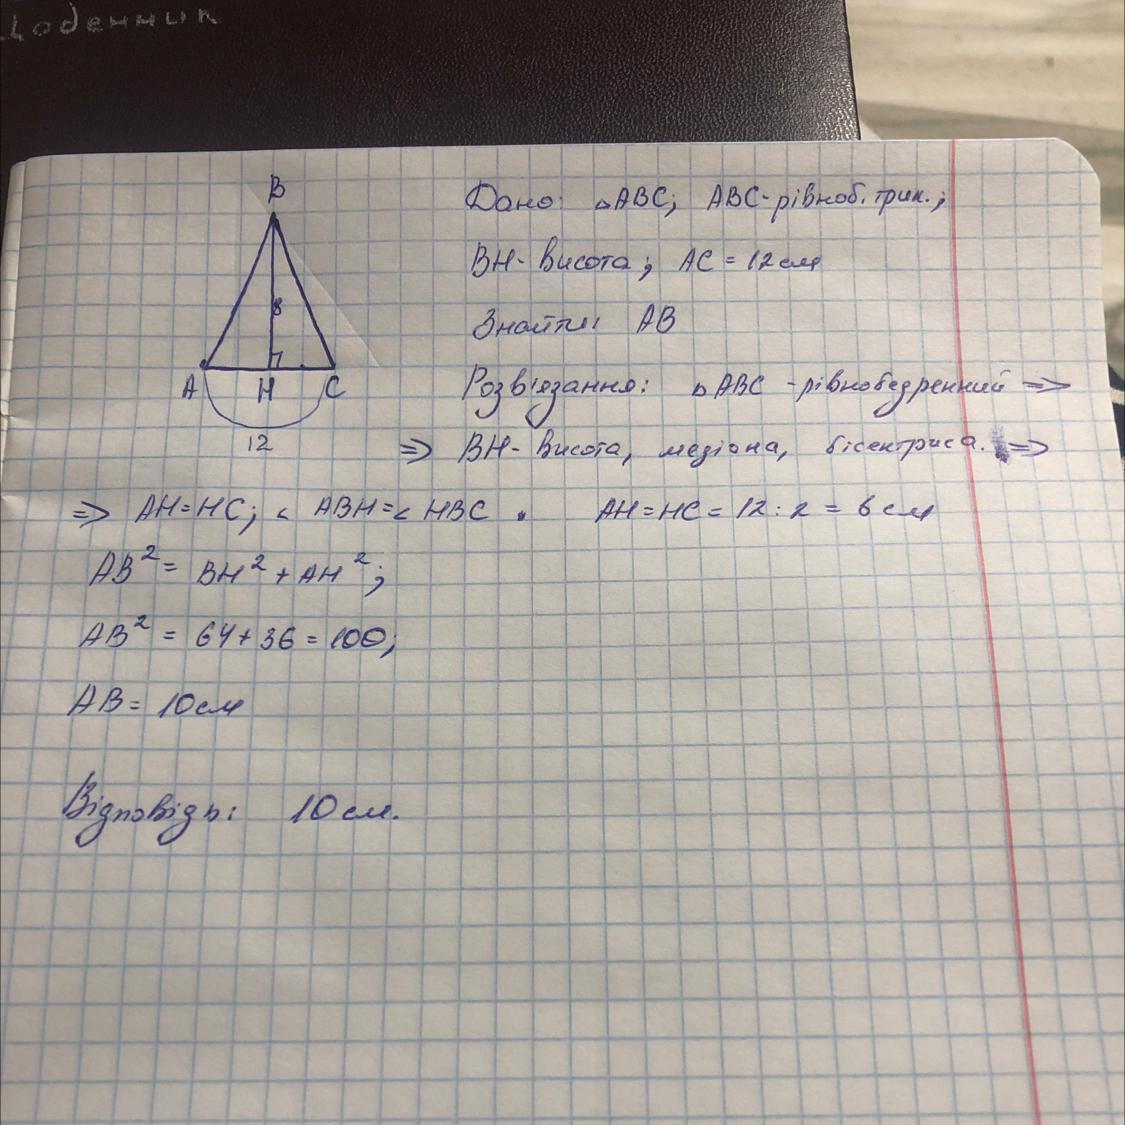 Щоденник
B
8
A H C
12
Дано: △ABC; ABC-рівноб. трик.;
BH- висота; AC = 12 см
Знайти: AB
Розв'язання: △ABC -рівнобедренний =>
=> BH- висота, медіана, бісентриса. =>
=> AH=HC; < ABH=< HBC . AH=HC= 12:2 = 6 см
AB² = BH² + AH²;
AB² = 64+36 = 100;
AB= 10 см
Відповідь: 10 см.